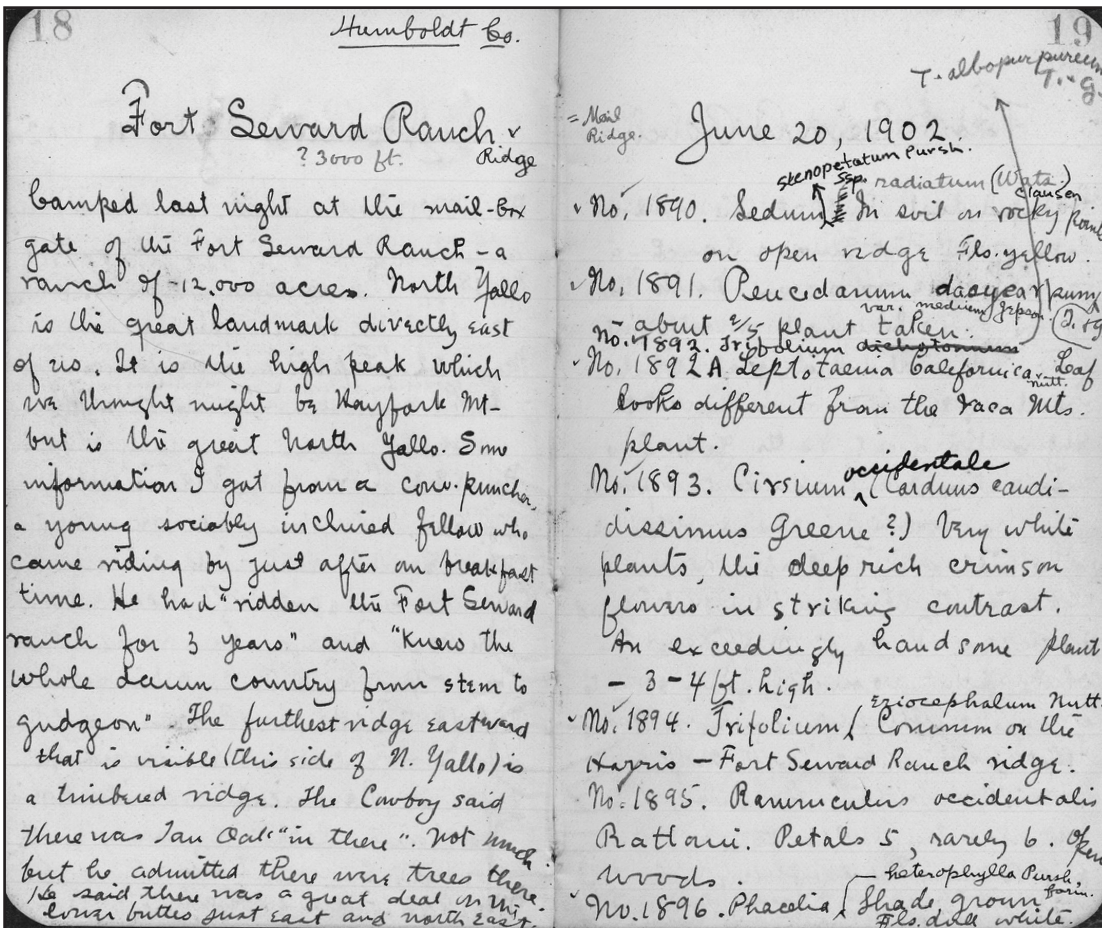 18
Humboldt Co.
Fort Seward Ranch
? 3000 ft. Ridge
Camped last night at the mail-box
gate of the Fort Seward Ranch - a
ranch of 12,000 acres. North Yallo
is the great landmark directly east
of us. It is the high peak which
we thought might be Hayfork Mt-
but is the great North Yallo. Some
information I got from a cow-puncher,
a young sociably inclined fellow who
came riding by just after our breakfast
time. He had "ridden the Fort Seward
ranch for 3 years" and "knew the
whole damn country from stem to
gudgeon". The furthest ridge eastward
that is visible (this side of N. Yallo) is
a timbered ridge. The Cowboy said
there was Tan Oak "in there". Not much
but he admitted there were trees there.
He said there was a great deal on the
lower buttes just east and north east.
19
T. albopurpureum
T. & G.
= Mail
Ridge.
June 20, 1902.
stenopetalum Pursh.
ssp. radiatum (Wats.)
Clausen
No. 1890. Sedum In soil on rocky point
on open ridge Fls. yellow.
No. 1891. Peucedanum dasycarpum
var. medium Jepson.
- about 2/5 plant taken.
No. 1892. Trifolium dichotomum
No. 1892A. Leptotaenia Californica Nutt. Leaf
looks different from the Vaca Mts.
plant.
occidentale
No. 1893. Cirsium (Carduus candi-
dissimus Greene ?) Very white
plants, the deep rich crimson
flowers in striking contrast.
An exceedingly handsome plant
- 3-4 ft. high.
Eriocephalum Nutt.
No. 1894. Trifolium Common on the
Harris - Fort Seward Ranch ridge.
No. 1895. Ranunculus occidentalis
Rattani. Petals 5, rarely 6. Open
woods.
heterophylla Pursh.
form.
No. 1896. Phacelia Shade grown
Fls. dull white.